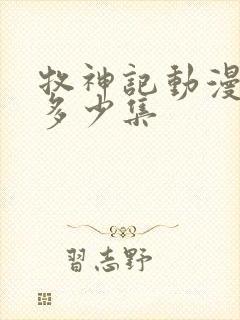 牧神記動漫
多少集
習志野